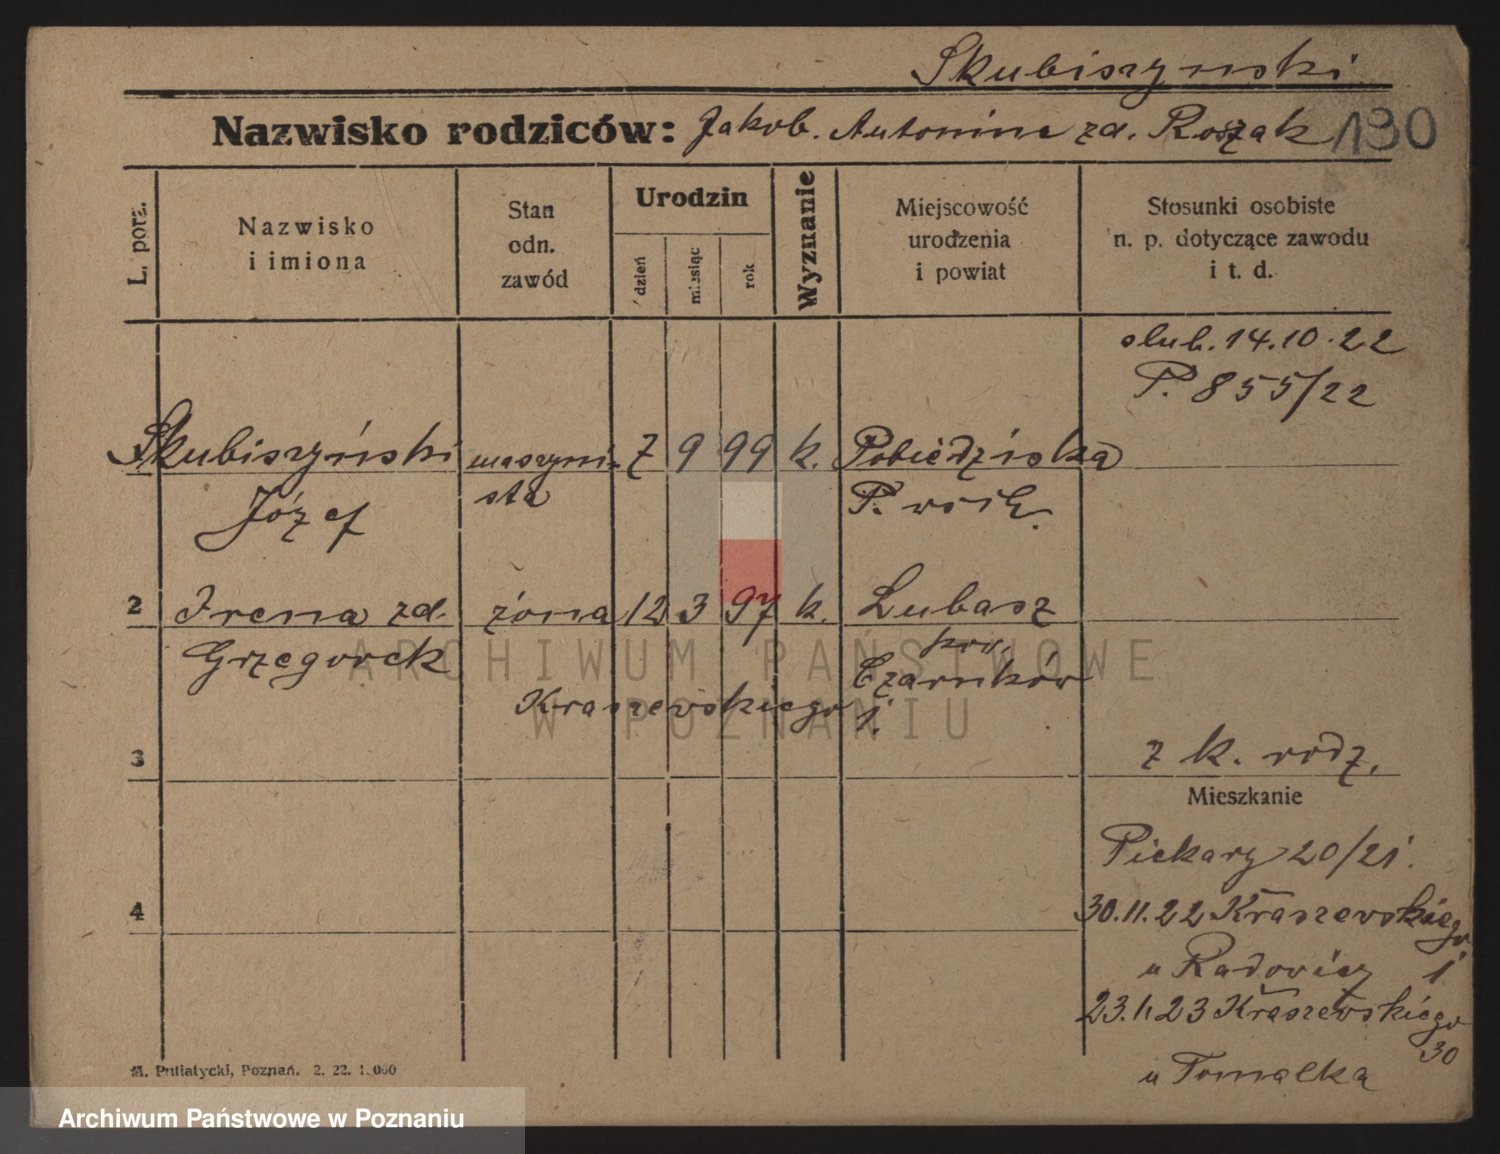 Skubiszynski
Nazwisko rodziców: Jakob. Antonina zd. Roszak 130
L. porz.
Nazwisko
i imiona
Stan
odn.
zawód
Urodzin
dzień
miesiąc
rok
Wyznanie
Miejscowość
urodzenia
i powiat
Stosunki osobiste
n. p. dotyczące zawodu
i t. d.
slub. 14.10.22
P. 855/22
Skubiszyński maszyni- 7 9 99 k. Pobiedziska
Józef sta P. wsch.
2 Irena zd. żona 12 3 97 k. Lubasz
Grzegorek pow.
Czarnków
Kraszewskiego 1.
3 z k. rodz.
Mieszkanie
Piekary 20/21.
4 30.11.22 Kraszewskiego
u Radowicz 1
23.1.23 Kraszewskiego
30
u Tomalka
M. Putiatycki, Poznań. 2. 22. 1.000
ARCHIWUM PAŃSTWOWE
W POZNANIU
Archiwum Państwowe w Poznaniu